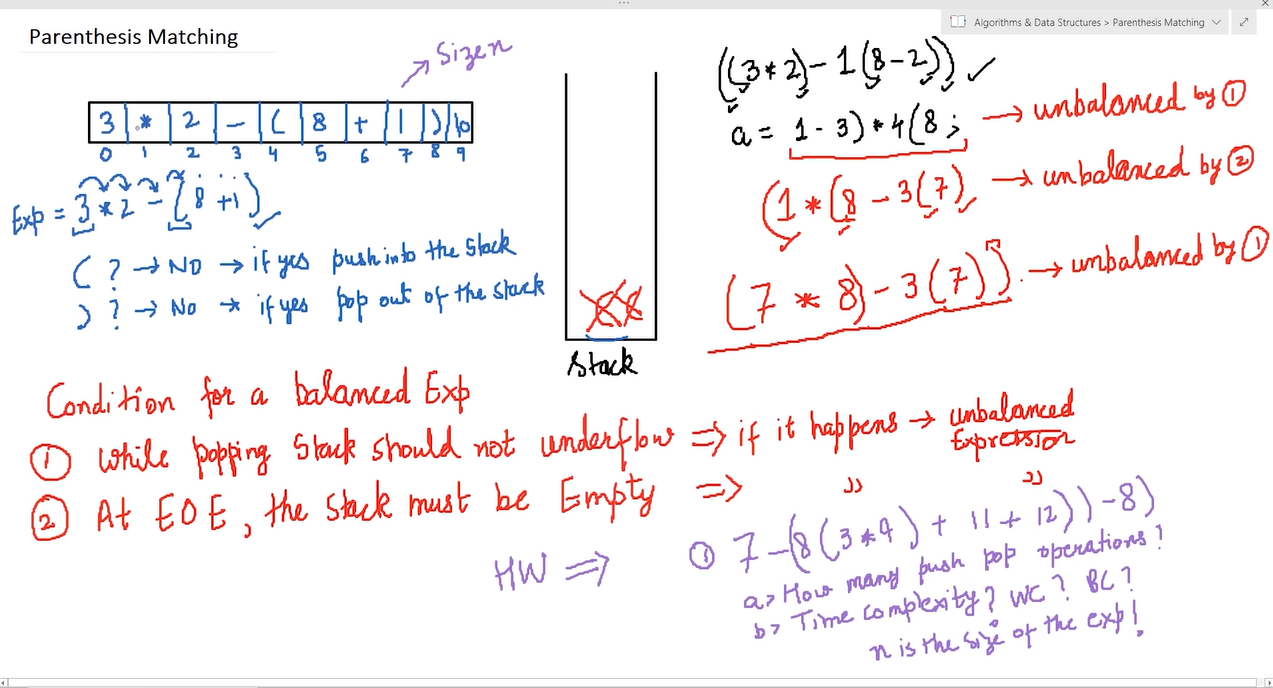 Algorithms & Data Structures > Parenthesis Matching
Parenthesis Matching
Size n
3 * 2 - ( 8 + 1 ) \0
0 1 2 3 4 5 6 7 8 9
Exp = 3 * 2 - (8 + 1)
( ? → NO → if yes push into the stack
) ? → No → if yes pop out of the stack
Stack
((3*2) - 1(8-2)) ✓
a = 1 - 3) * 4(8 ; → unbalanced by ①
(1 * (8 - 3(7) → unbalanced by ②
(7 * 8) - 3(7)) → unbalanced by ①
Condition for a balanced Exp
① While popping Stack should not underflow => if it happens → unbalanced
Expression
② At EOE, the stack must be Empty => " "
HW =>
① 7 - (8(3*9) + 11 + 12)) - 8)
a> How many push pop operations?
b> Time complexity? WC? BC?
n is the size of the exp!